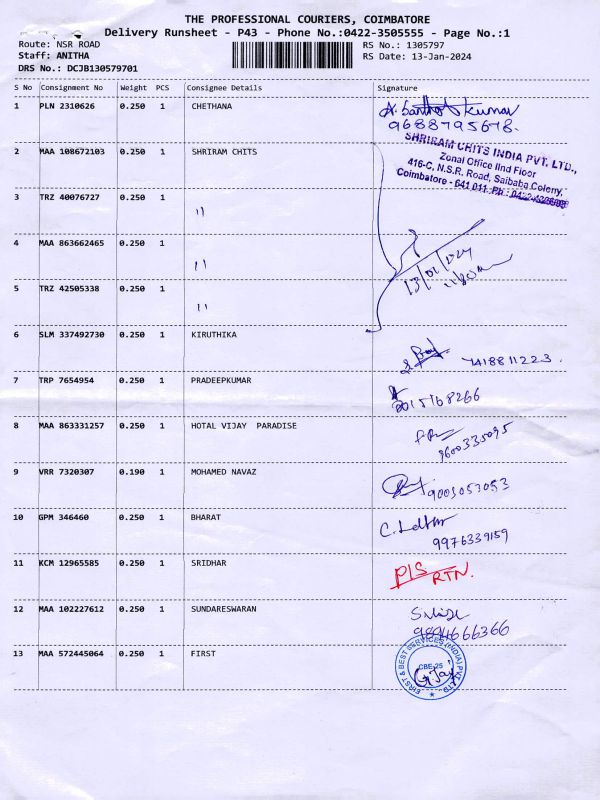 THE PROFESSIONAL COURIERS, COIMBATORE
Delivery Runsheet - P43 - Phone No.:0422-3505555 - Page No.:1
Route: NSR ROAD
RS No.: 1305797
Staff: ANITHA
RS Date: 13-Jan-2024
DRS No.: DCJB130579701
S No Consignment No Weight PCS Consignee Details Signature
1 PLN 2310626 0.250 1 CHETHANA
9688795678.
2 MAA 108672103 0.250 1 SHRIRAM CHITS
SHRIRAM CHITS INDIA PVT. LTD.,
Zonal Office IInd Floor
416-C, N.S.R. Road, Saibaba Colony,
Coimbatore - 641 011. Ph :
3 TRZ 40076727 0.250 1 "
4 MAA 863662465 0.250 1 "
13/01/2024
5 TRZ 42505338 0.250 1 "
6 SLM 337492730 0.250 1 KIRUTHIKA
7418811223.
7 TRP 7654954 0.250 1 PRADEEPKUMAR
8015168266
8 MAA 863331257 0.250 1 HOTAL VIJAY PARADISE
9600335095
9 VRR 7320307 0.190 1 MOHAMED NAVAZ
9003053053
10 GPM 346460 0.250 1 BHARAT
9976339159
11 KCM 12965585 0.250 1 SRIDHAR
P/S RTN.
12 MAA 102227612 0.250 1 SUNDARESWARAN
9894666366
13 MAA 572445064 0.250 1 FIRST
FIRST & BEST SERVICES (INDIA) PVT. LTD.
CBE-25